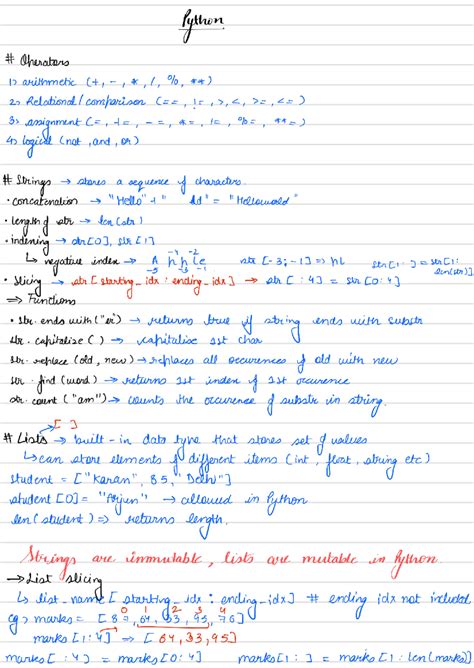 Python
# Operators
1) arithmetic (+, -, *, /, %, **)
2) Relational / comparison (==, !=, >, <, >=, <=)
3) assignment (=, +=, -=, *=, /=, %=, **=)
4) logical (not, and, or)
# Strings → stores a sequence of characters.
• concatenation → "Hello" + "world" = "Helloworld"
• length of str → len(str)
• indexing → str[0], str[1]
↳ negative index → Apple str[-3:-1] => pl str[1:] = str[1:len(str)]
-4 -2
-5 -3 -1
• slicing → str[starting_idx : ending_idx] → str[:4] = str[0:4]
⇒ Functions
• str.endswith("er") → returns true if string ends with substr
str.capitalize() → capitalize 1st char
str.replace(old, new) → replaces all occurences of old with new
str.find(word) → returns 1st index of 1st occurence
str.count("am") → counts the occurence of substr in string.
[ ]
# Lists → built-in data type that stores set of values
↳ can store elements of different items (int, float, string etc)
student = ["Karan", 85, "Delhi"]
student[0] = "Arjun" → allowed in Python
len(student) => returns length.
Strings are immutable, lists are mutable in Python.
→ List slicing
↳ list_name[starting_idx : ending_idx] # ending idx not included
0 1 2 3 4
eg > marks = [87, 64, 33, 95, 76]
marks[1:4] → [64, 33, 95]
marks[:4] = marks[0:4] marks[1:] = marks[1:len(marks)]